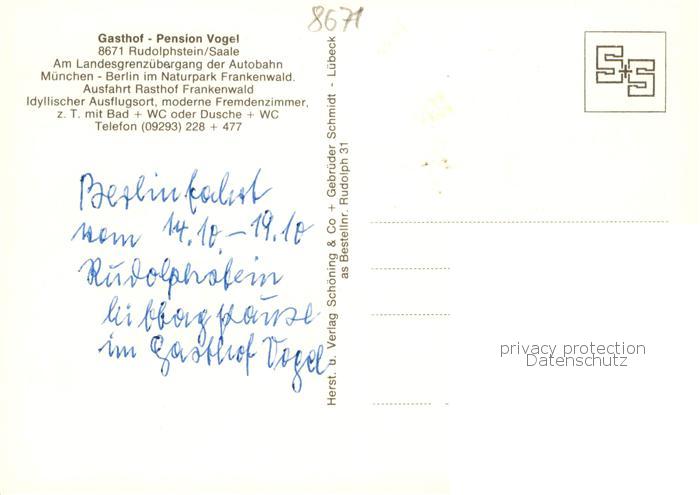 8671
Gasthof - Pension Vogel
8671 Rudolphstein/Saale
Am Landesgrenzübergang der Autobahn
München - Berlin im Naturpark Frankenwald.
Ausfahrt Rasthof Frankenwald
Idyllischer Ausflugsort, moderne Fremdenzimmer,
z. T. mit Bad + WC oder Dusche + WC
Telefon (09293) 228 + 477
Berlinfahrt
vom 14.10 - 19.10
Rudolphstein
Mittagspause
im Gasthof Vogel
Herst. u. Verlag Schöning & Co + Gebrüder Schmidt - Lübeck
as Bestellnr. Rudolph 31
S+S
privacy protection
Datenschutz